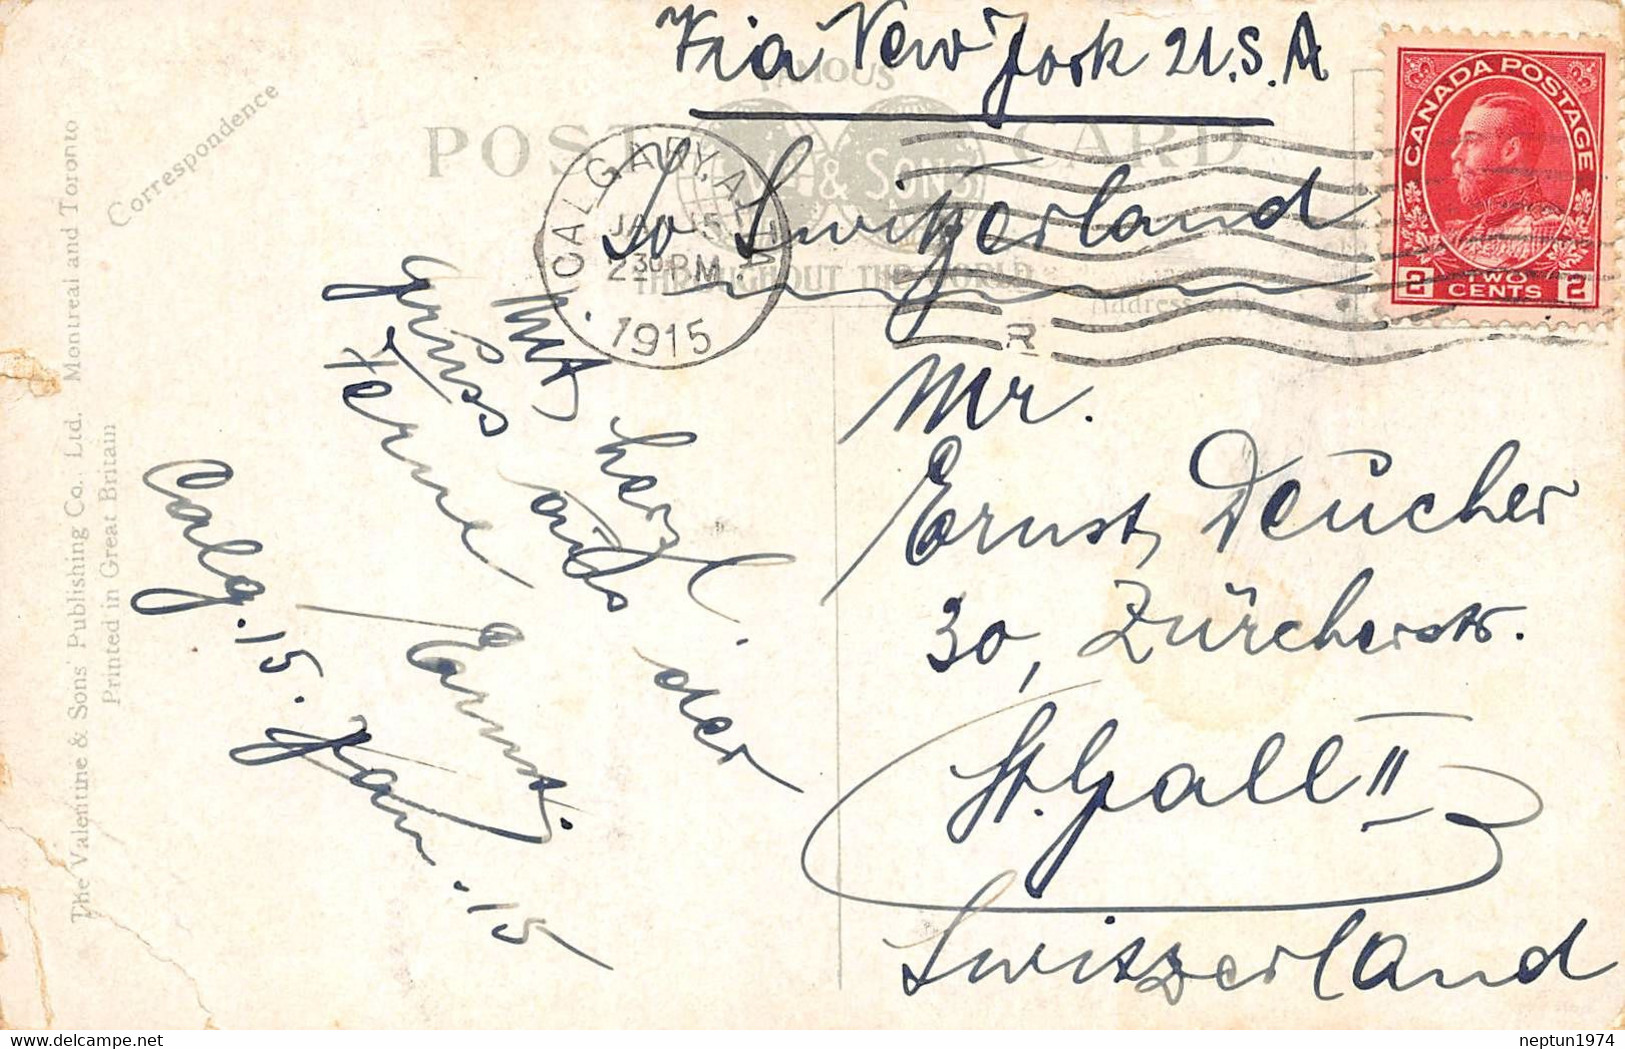 Via New York U.S.A
To Switzerland
FAMOUS
POST CARD
& SONS
THROUGHOUT THE WORLD
Address only
CALGARY, ALTA
JAN 15
2 30 PM
1915
R
CANADA POSTAGE
2 TWO CENTS 2
Correspondence
Mit herzl.
Gruss aus der
Ferne
Ernst.
Calg. 15. Jan. 15
Mr.
Ernst Deucher
30, Zürcherstr.
St. Gall II
Switzerland
The Valentine & Sons' Publishing Co. Ltd. Montreal and Toronto
Printed in Great Britain
www.delcampe.net
neptun1974